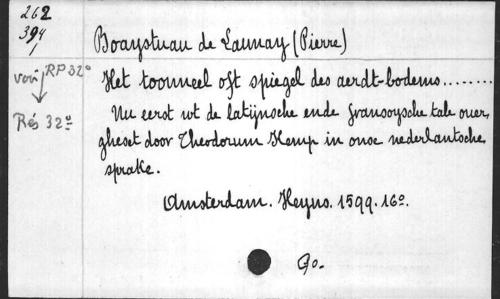 262
394
1
Boaystuau de Launay (Pierre)
voir RP 32°
Het toonneel oft spiegel des aerdt-bodems........
Nu eerst wt de latijnsche ende fransoysche tale ouer,
Rés 32°
gheset door Theodorum Kemp in onse nederlantsche
sprake.
Amsterdam. Heyns. 1599. 16°.
Go.